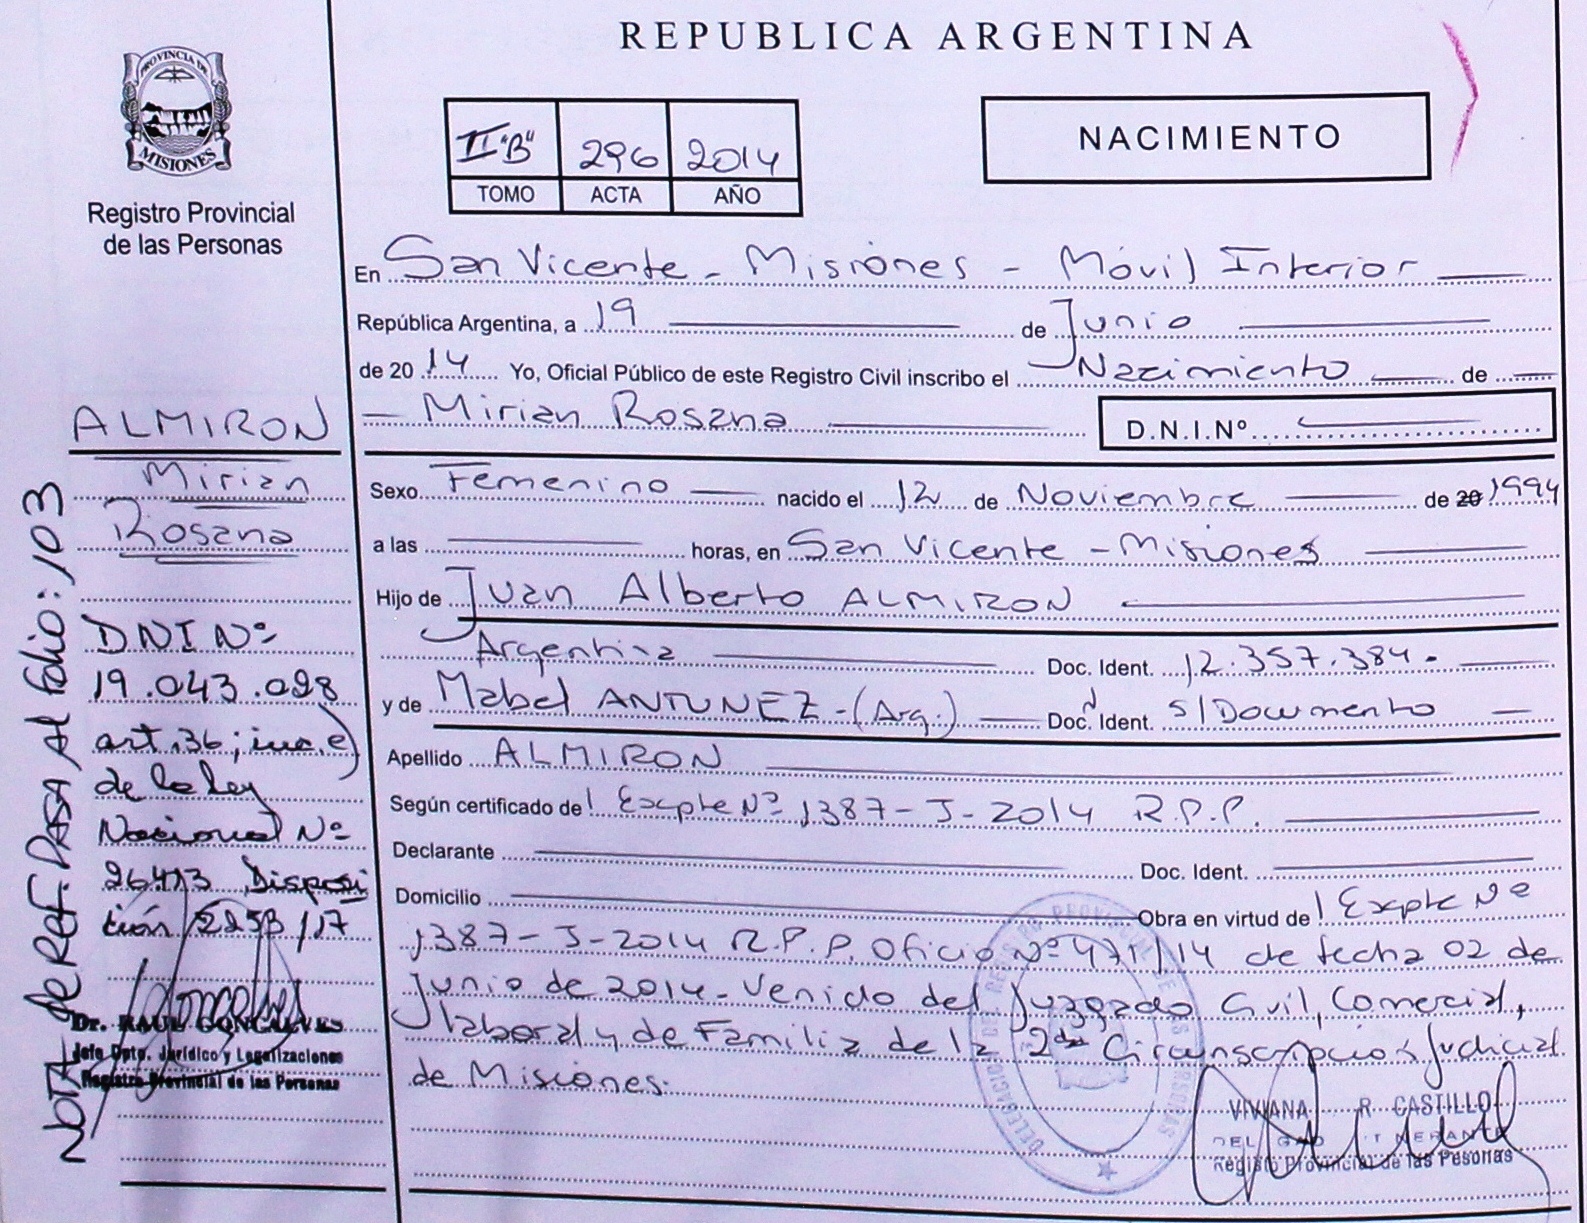 REPUBLICA ARGENTINA
PROVINCIA DE
MISIONES
Registro Provincial
de las Personas
II "B" 296 2014
TOMO ACTA AÑO
NACIMIENTO
En San Vicente - Misiones - Móvil Interior
República Argentina, a 19 de Junio
de 2014 Yo, Oficial Público de este Registro Civil inscribo el Nacimiento de
Mirian Rosana
D.N.I.Nº
Sexo Femenino nacido el 12 de Noviembre de 20 1994
a las horas, en San Vicente - Misiones
Hijo de Juan Alberto ALMIRON
Argentina Doc. Ident. 12.357.384.
y de Mabel ANTUNEZ - (Arg.) Doc. Ident. S/Documento
Apellido ALMIRON
Según certificado de Expte Nº 1387-J-2014 R.P.P.
Declarante Doc. Ident.
Domicilio Obra en virtud de Expte Nº
1387-J-2014 R.P.P. Oficio Nº 471/14 de fecha 02 de
Junio de 2014- Venido del Juzgado Civil, Comercial,
laboral y de Familia de la 2da Circunscripción Judicial
de Misiones.
VIVIANA R. CASTILLO
Registro Provincial de las Pesonas
ALMIRON
Mirian
Rosana
DNI Nº
19.043.028
art.36; inc.e)
de la ley
Nacional Nº
26413 Disposi
ción 2253/17
Dr. RAUL GONCALVES
Jefe Dpto. Jurídico y Legalizaciones
Registro Provincial de las Personas
NOTA de REF. PASA Al folio: 103